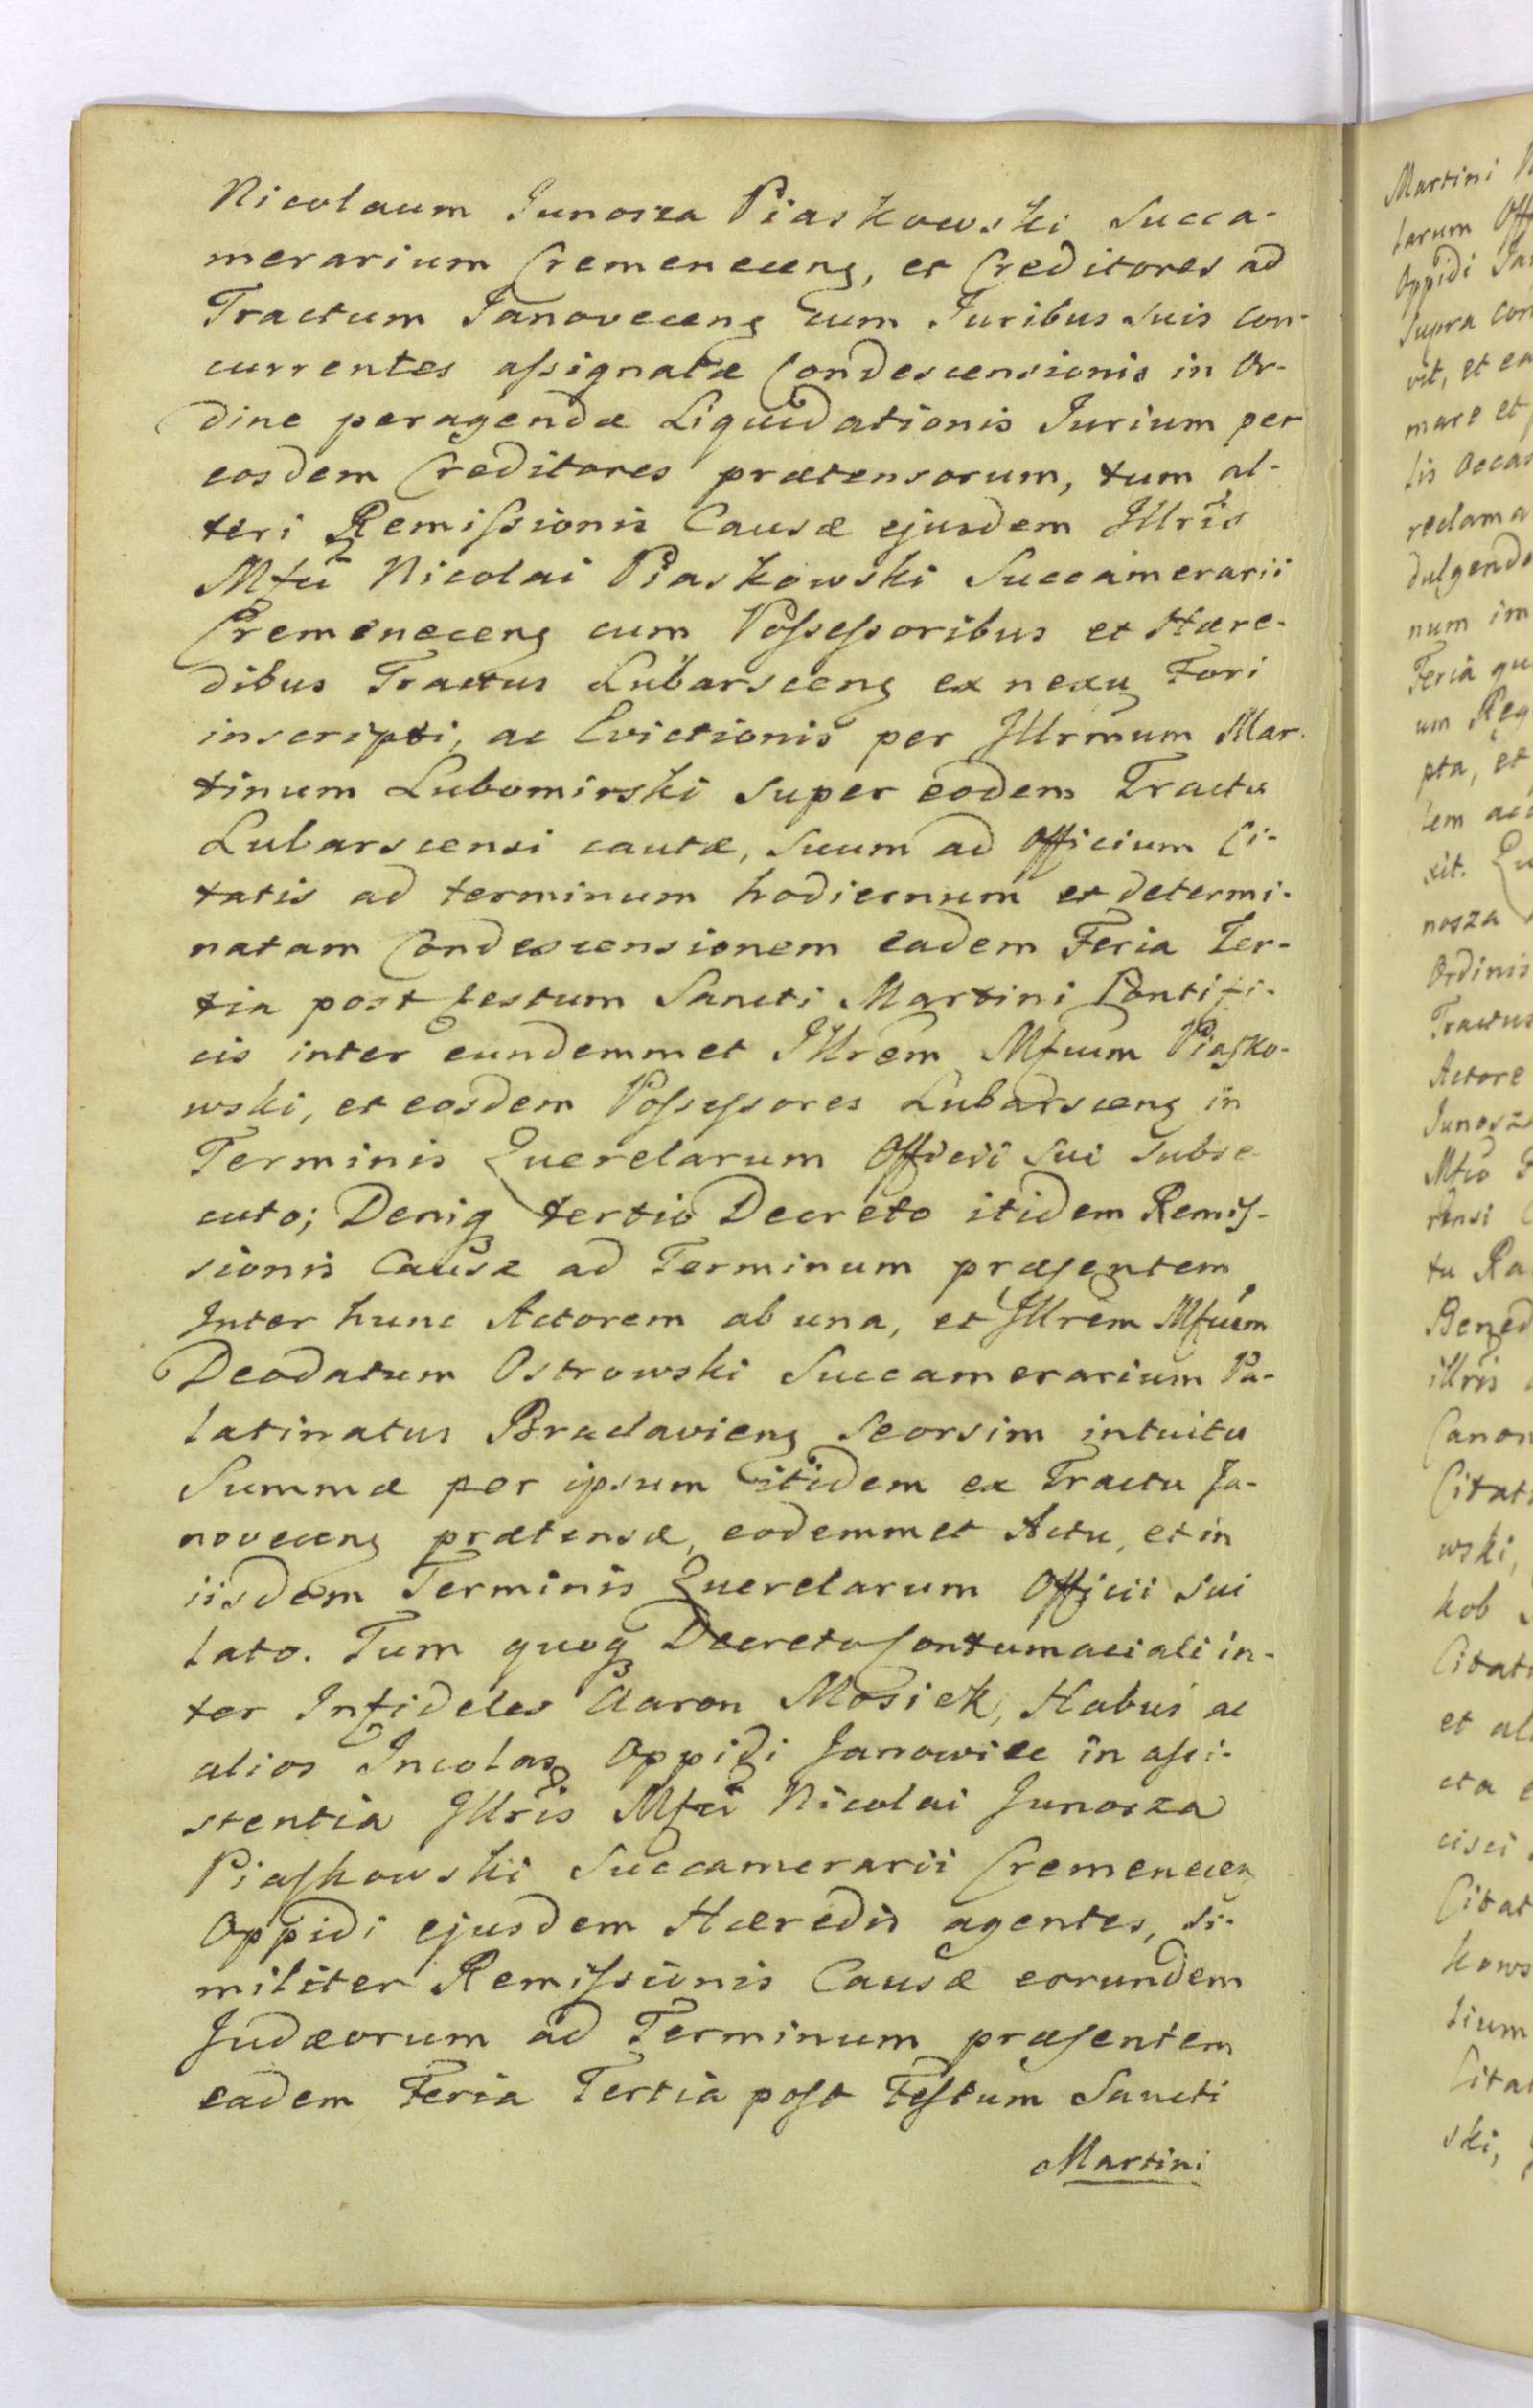 Nicolaum Junosza Piaskowski Succa-
merarium Cremenecens, et Creditores ad
Tractum Janovecens cum Juribus suis con-
currentes assignatæ Condescensionis in Or-
dine peragendæ Liquidationis Jurium per
eosdem Creditores prætensorum, tum al-
teri Remissionis Causæ ejusdem Illris
Mfci Nicolai Piaskowski Succamerarii
Cremenecens cum Possessoribus et Hære-
dibus Tractus Lubarscens ex nexu Fori
inscripti, ac Evictionis per Illrmum Mar-
tinum Lubomirski super eodem Tractu
Lubarscensi cautæ, suum ad Officium Ci-
tatis ad terminum hodiernum et determi-
natam Condescensionem eadem Feria Ter-
tia post festum Sancti Martini Pontifi-
cis inter eundemmet Illrem Mfcum Piasko-
wski, et eosdem Possessores Lubarscens in
Terminis Querelarum Officii sui subse-
cuto; Deniq tertio Decreto itidem Remis-
sionis Causæ ad Terminum præsentem
Inter hunc Actorem ab una, et Illrem Mfcum
Deodatum Ostrowski Succamerarium Pa-
latinatus Braclaviens seorsim intuitu
Summæ per ipsum itidem ex Tractu Ja-
novecens prætensæ, eodemmet Actu, et in
iisdem Terminis Querelarum Officii sui
lato. Tum quoq Decreto Contumaciali in-
ter Infideles Aaron Mosiek, Habus ac
alios Incolas Oppidi Janowiec in assi-
stentia Illris Mfci Nicolai Junosza
Piaskowski Succamerarii Cremenecen
Oppidi ejusdem Hæredis agentes, si-
militer Remissionis Causæ eorundem
Judæorum ad Terminum præsentem
eadem Feria Tertia post Festum Sancti
Martini
Martini
larum
Oppidi
supra
vit, et
mare et
lis
reclama
dulgendo
num im
Feria
um
pta, et
xit.
nosza
Ordinis
Tractus
Actore
Mfco
rensi
Bened
illris
Canon
Citat
wski,
kob
Citat
et al
cta
cisci
Citat
kows
tium
Citat
ski,